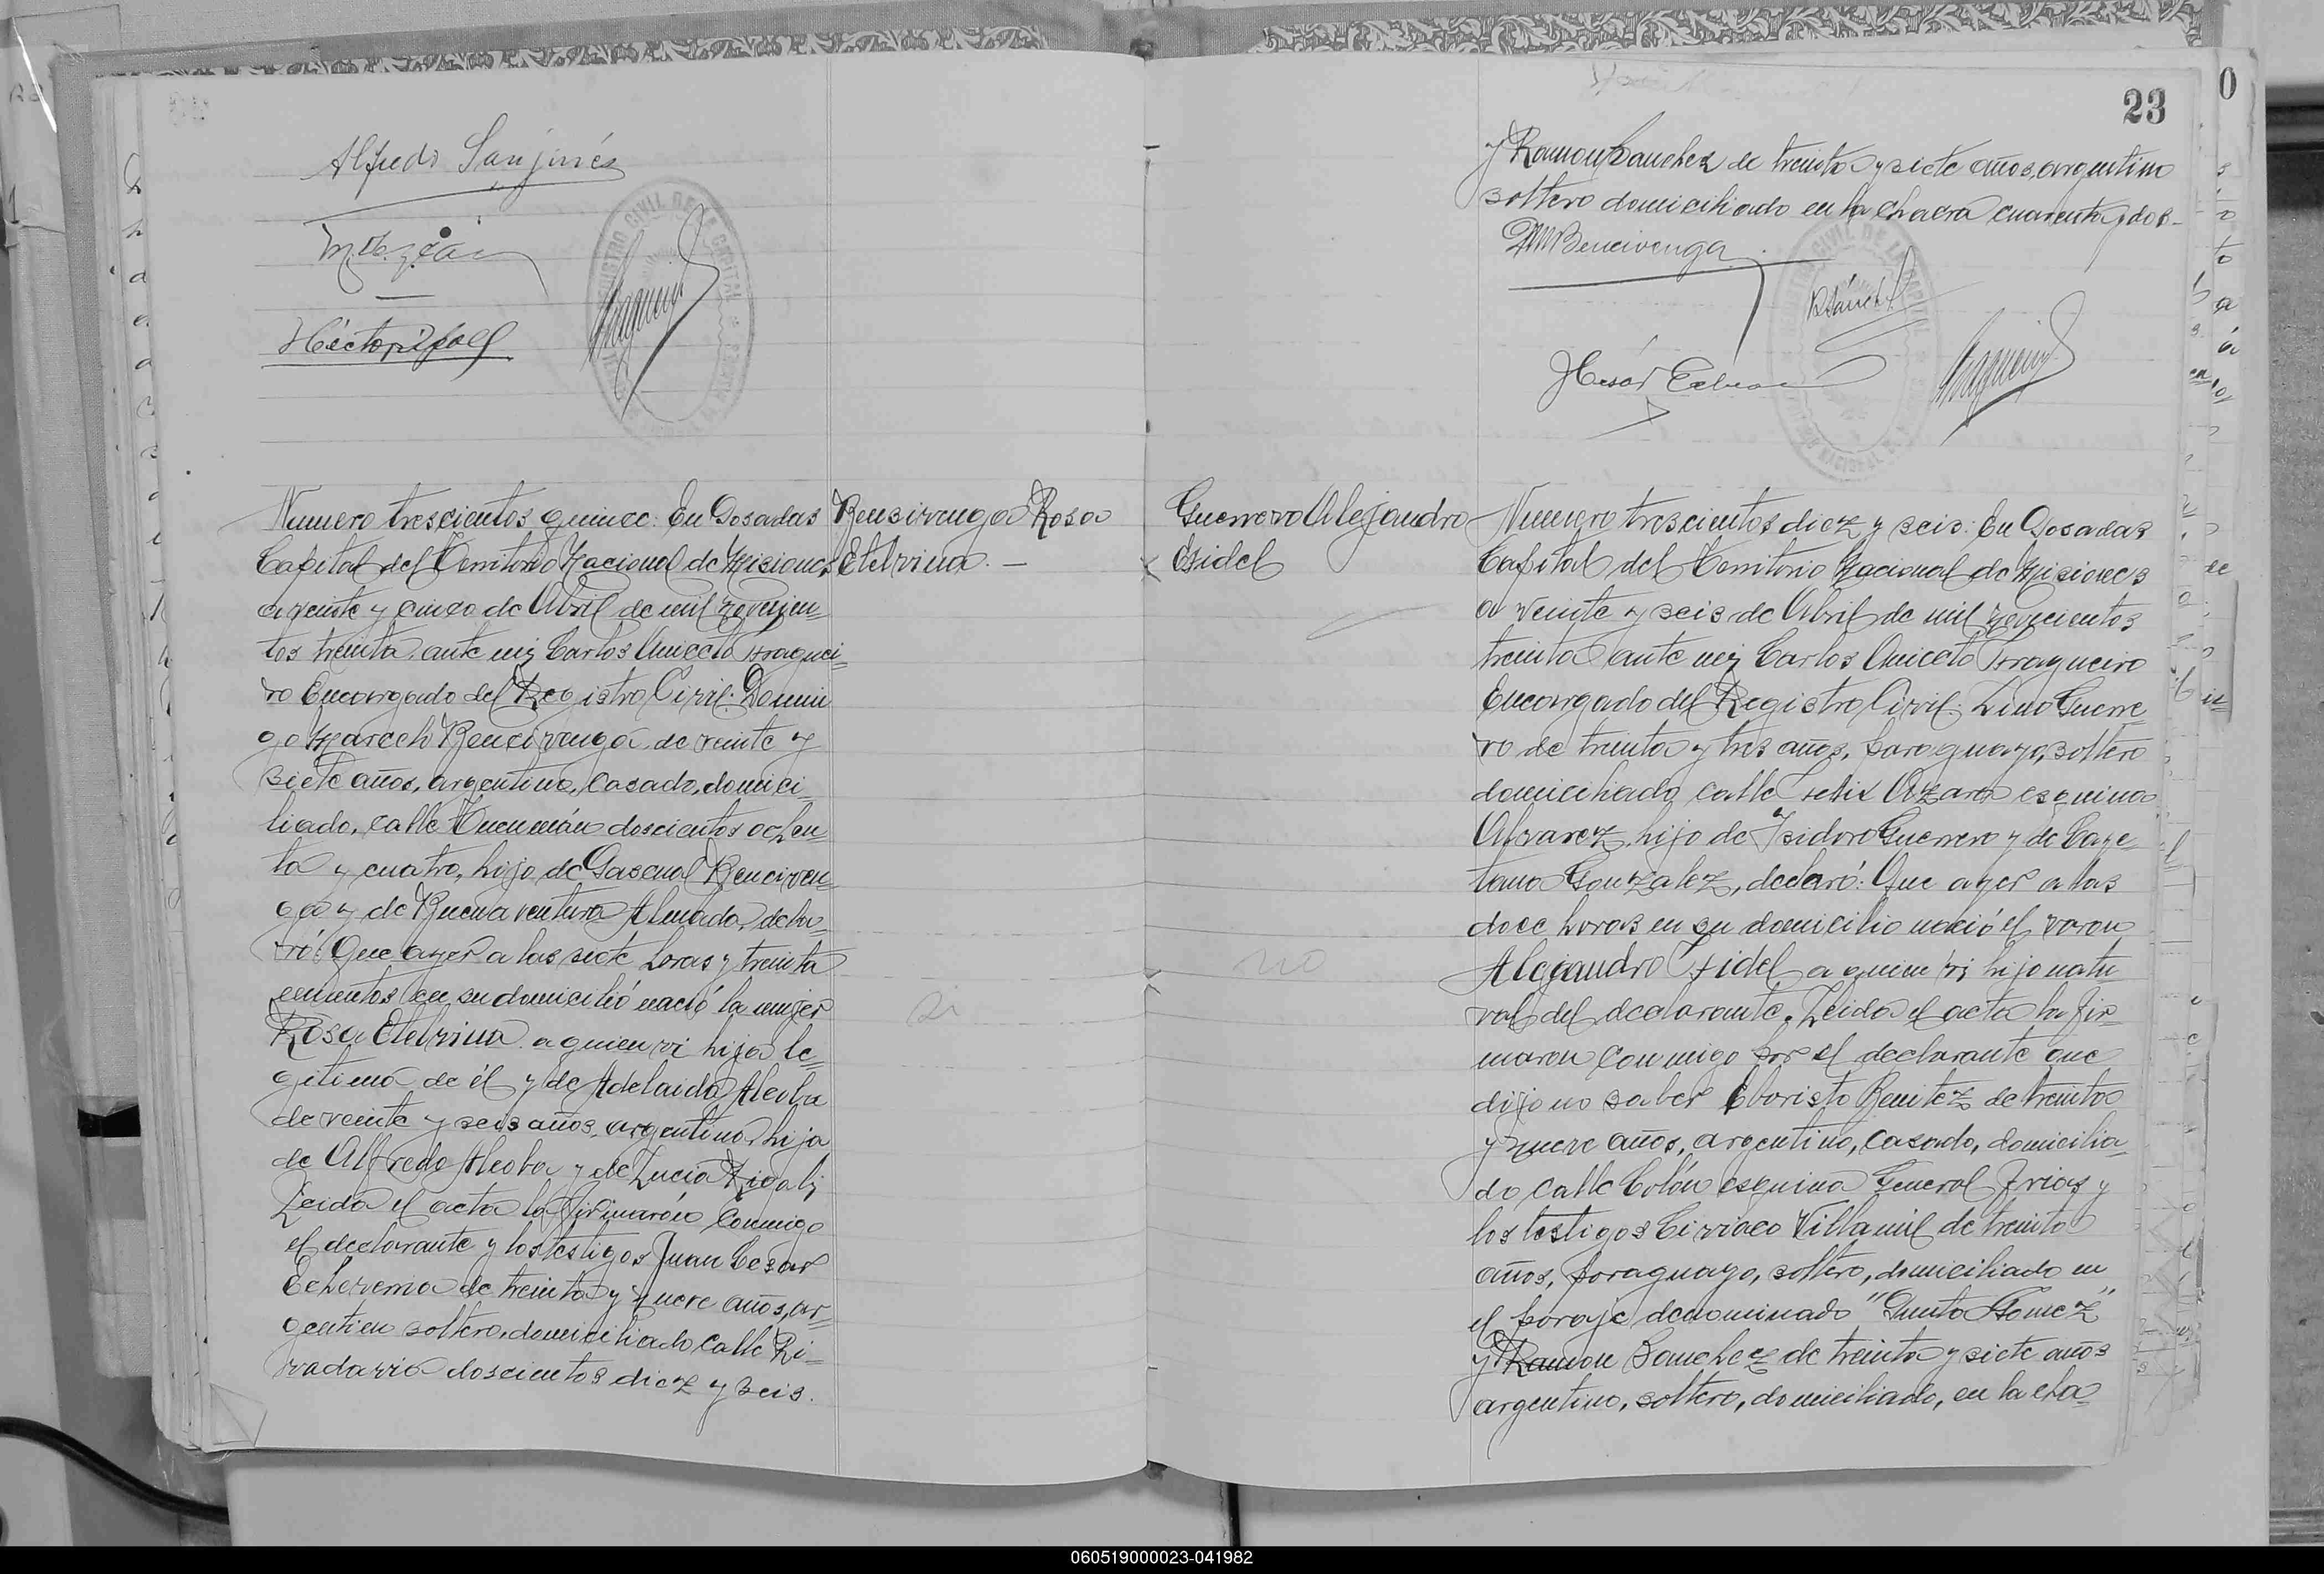 Alfredo Sanjinés
Numero trescientos quince: En Posadas
Capital del Territorio Nacional de Misiones
a veinte y cinco de Abril de mil novecien=
tos treinta, ante mi, Carlos Aniceto Fraguei=
ro Encargado del Registro Civil: Domin
go Marcelo Bencivenga de veinte y
siete años, argentino, casado, domici
liado, calle Tucumán doscientos ochen
ta y cuatro, hijo de Pascual Benciven=
ga y de Buenaventura Almada, decla=
ró: Que ayer a las siete horas y treinta
minutos en su domicilió nació la mujer
Rosa Etelvina a quien vi hija le=
gitima de él y de Adelaida Alcoba
de veinte y seis años, argentina, hija
de Alfredo Alcoba y de Lucia Rigali
Leida el acta la firmarón conmigo
el declarante y los testigos Juan Cesar
Echeverria de treinta y nueve años, ar=
gentino soltero, domiciliado calle Ri=
vadavia doscientos diez y seis.
Bencivenga Rosa
Etelvina. —
si
23
y Ramon Sanchez de treinta y siete años, argentino
soltero domiciliado en la chacra cuarenta y dos-
DMBencivenga
RSánchez
Guerrero Alejandro
Fidel
no
Numero trescientos diez y seis: En Posadas
Capital del Territorio Nacional de Misiones
a veinte y seis de Abril de mil novecientos
treinta ante mi, Carlos Aniceto Fragueiro
Encargado del Registro Civil: Lino Guerre=
ro de treinta y tres años, paraguayo, soltero
domiciliado calle Felix Azara esquina
Alvarez, hijo de Isidoro Guerrero y de Caye=
tana Gonzalez, declaró: Que ayer a las
doce horas en su domicilio nació el varon
Alejandro Fidel a quien vi hijo natu
ral del declarante. Leida el acta la fir=
maron conmigo por el declarante que
dijo no saber Eboristo Benitez de treinta
y nueve años, argentino, casado, domicilia=
do calle Colón esquina General Frias y
los testigos Ciriaco Villamil de treinta
años, paraguayo, soltero, domiciliado en
el paraje denominado "Punta Gomez"
y Ramon Sanchez de treinta y siete años
argentino, soltero, domiciliado, en la cha=
060519000023-041982